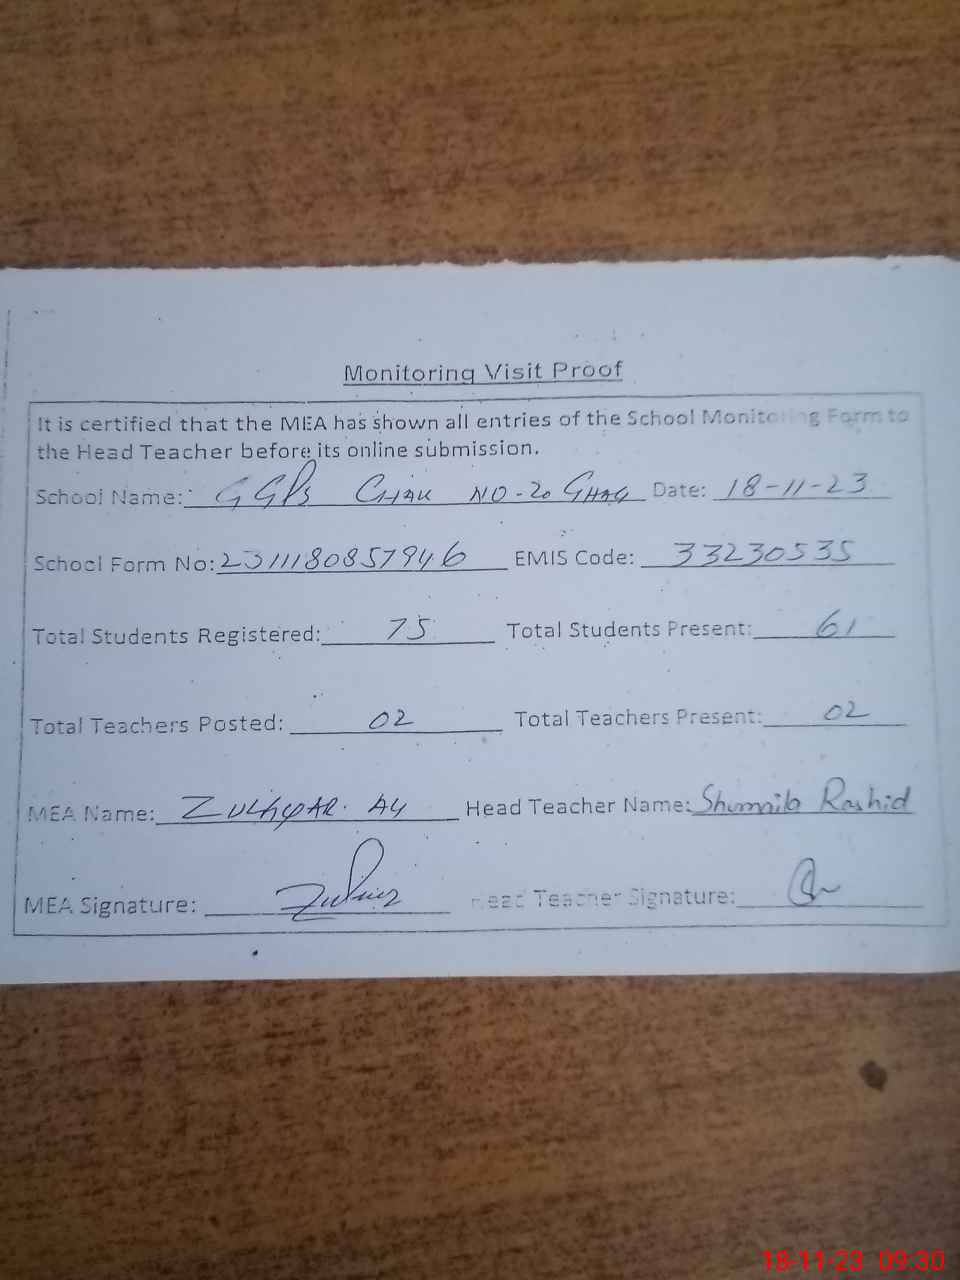 Monitoring Visit Proof
It is certified that the MEA has shown all entries of the School Monitoring Form to
the Head Teacher before its online submission.
School Name: GGPS CHAK NO-20 GHAG Date: 18-11-23
School Form No: 231118085794 6 EMIS Code: 33230535
Total Students Registered: 75 Total Students Present: 61
Total Teachers Posted: 02 Total Teachers Present: 02
MEA Name: ZULFIQAR. ALI Head Teacher Name: Shumaila Rashid
MEA Signature: Head Teacher Signature:
18-11-23 09:30